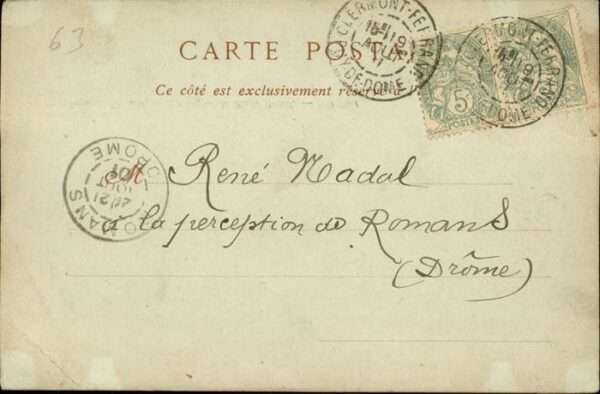 63
CARTE POSTA
Ce côté est exclusivement réservé à l'
CLERMONT-FERRAND
PUY-DE-DOME
5
POSTES
CLERMONT-FERRAND
DOME
René Nadal
à la perception de Romans
(Drôme)
ROMANS
DROME
21
AOUT
01